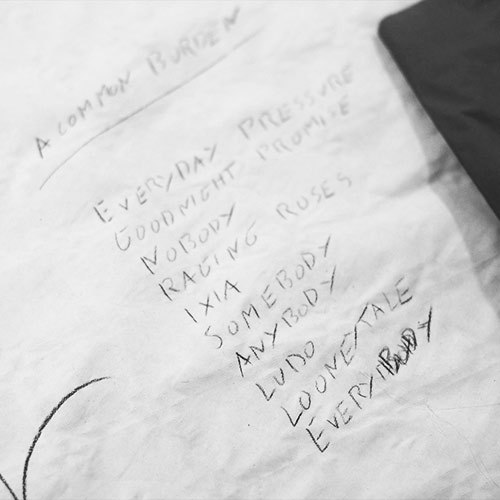 A COMMON BURDEN
EVERYDAY PRESSURE
GOODNIGHT PROMISE
NOBODY
RACING ROSES
IXIA
SOMEBODY
ANYBODY
LUDO
LOONEYTALE
EVERYBODY